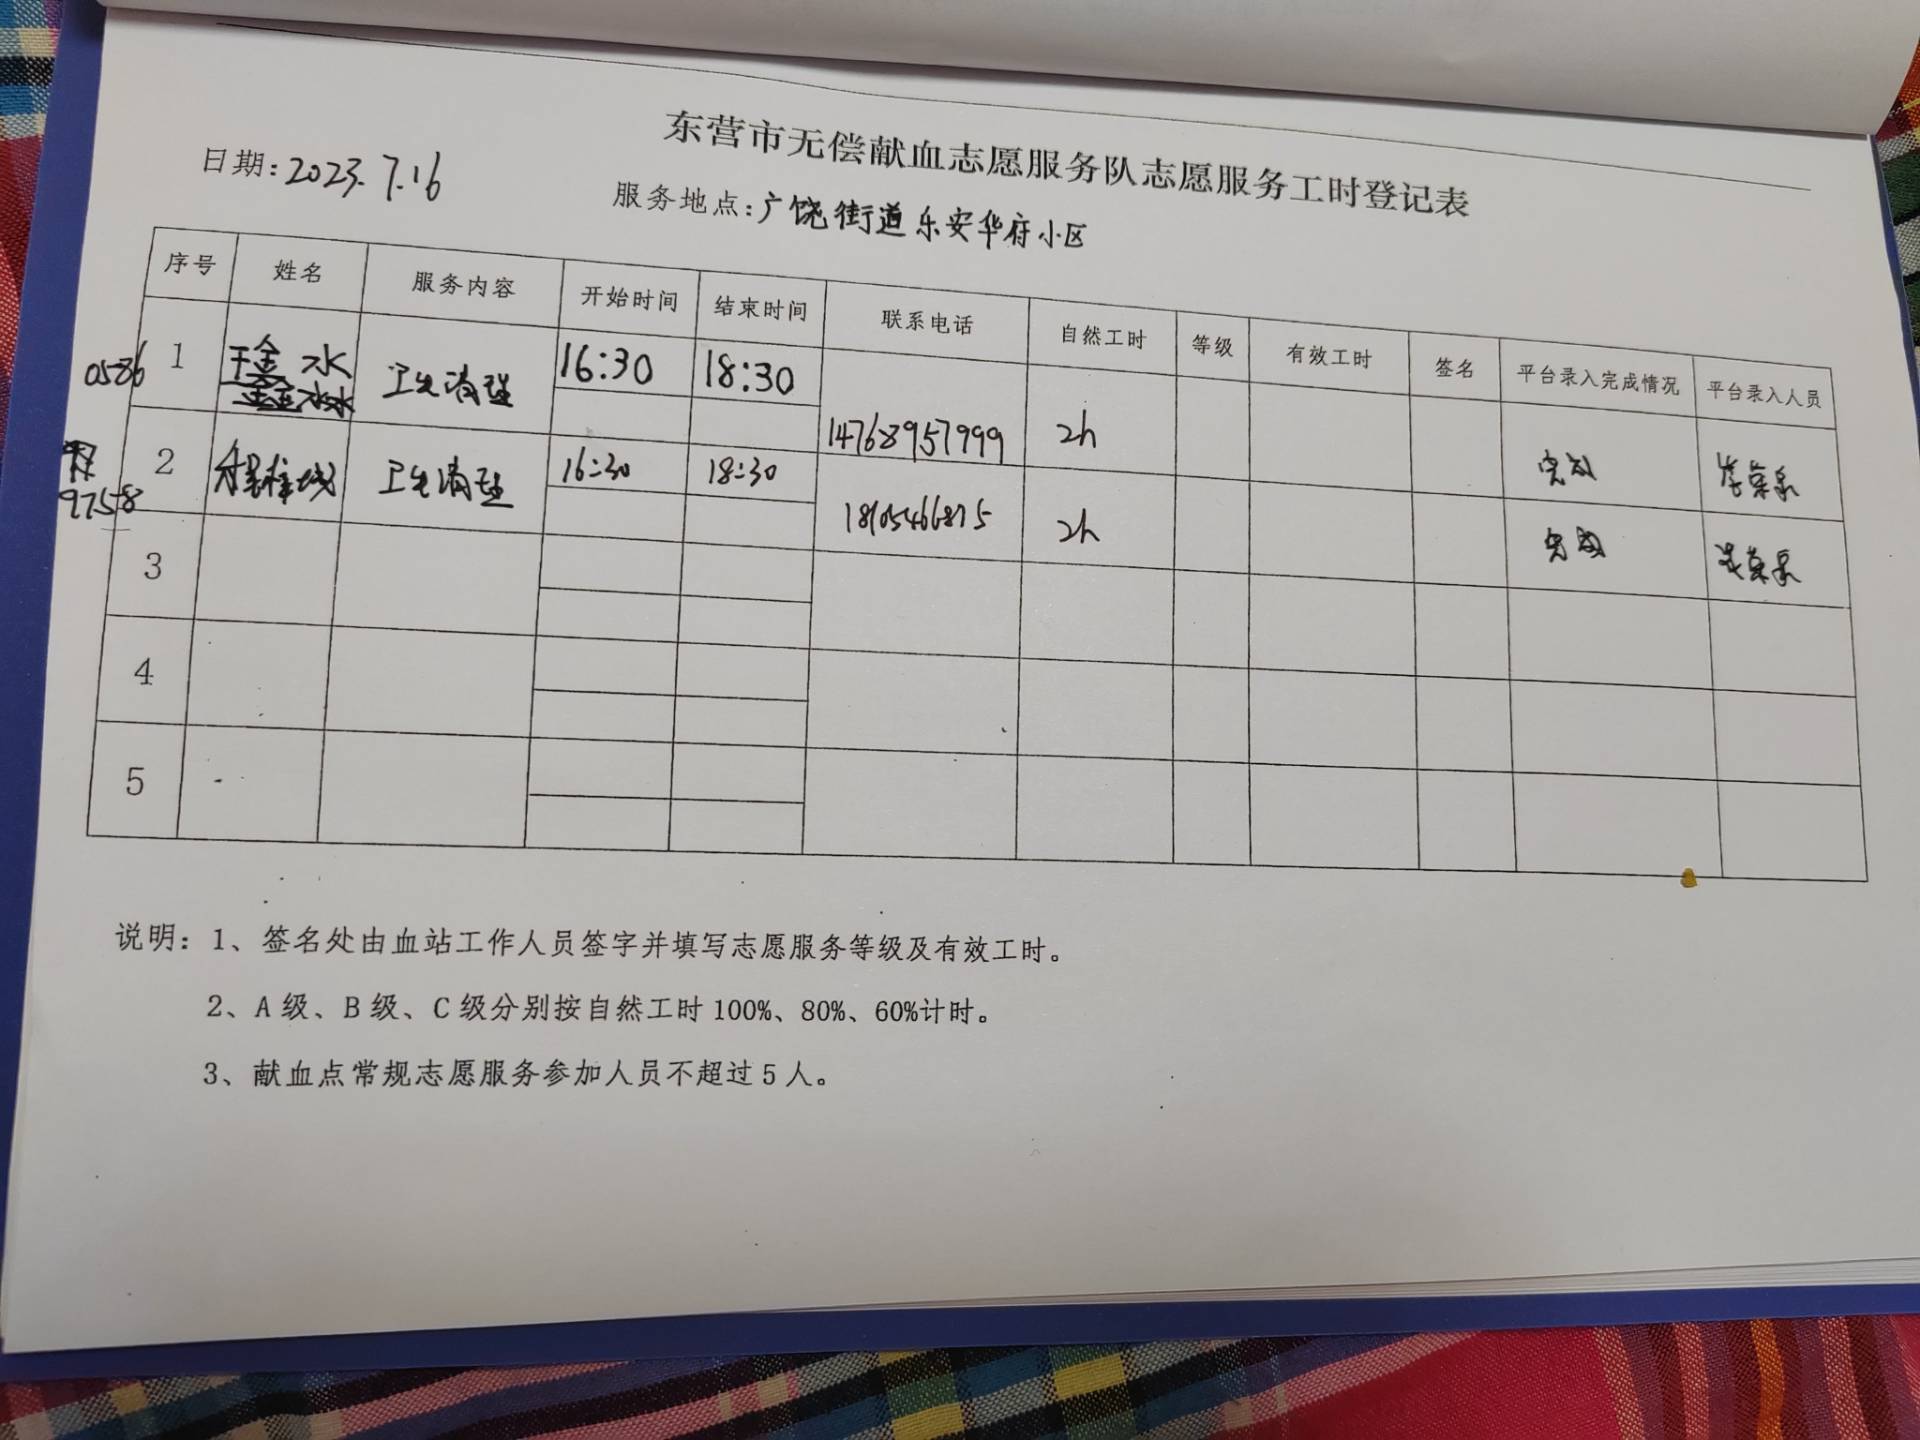 东营市无偿献血志愿服务队志愿服务工时登记表
日期:2023.7.16
服务地点:广饶街道乐安华府小区
序号 姓名 服务内容 开始时间 结束时间 联系电话 自然工时 等级 有效工时 签名 平台录入完成情况 平台录入人员
0586 1 水 卫生清理 16:30 18:30 14768957999 2h 完成
97758 2 卫生清理 16:30 18:30 18105466815 2h 完成
3
4
5
说明：1、签名处由血站工作人员签字并填写志愿服务等级及有效工时。
2、A级、B级、C级分别按自然工时100%、80%、60%计时。
3、献血点常规志愿服务参加人员不超过5人。